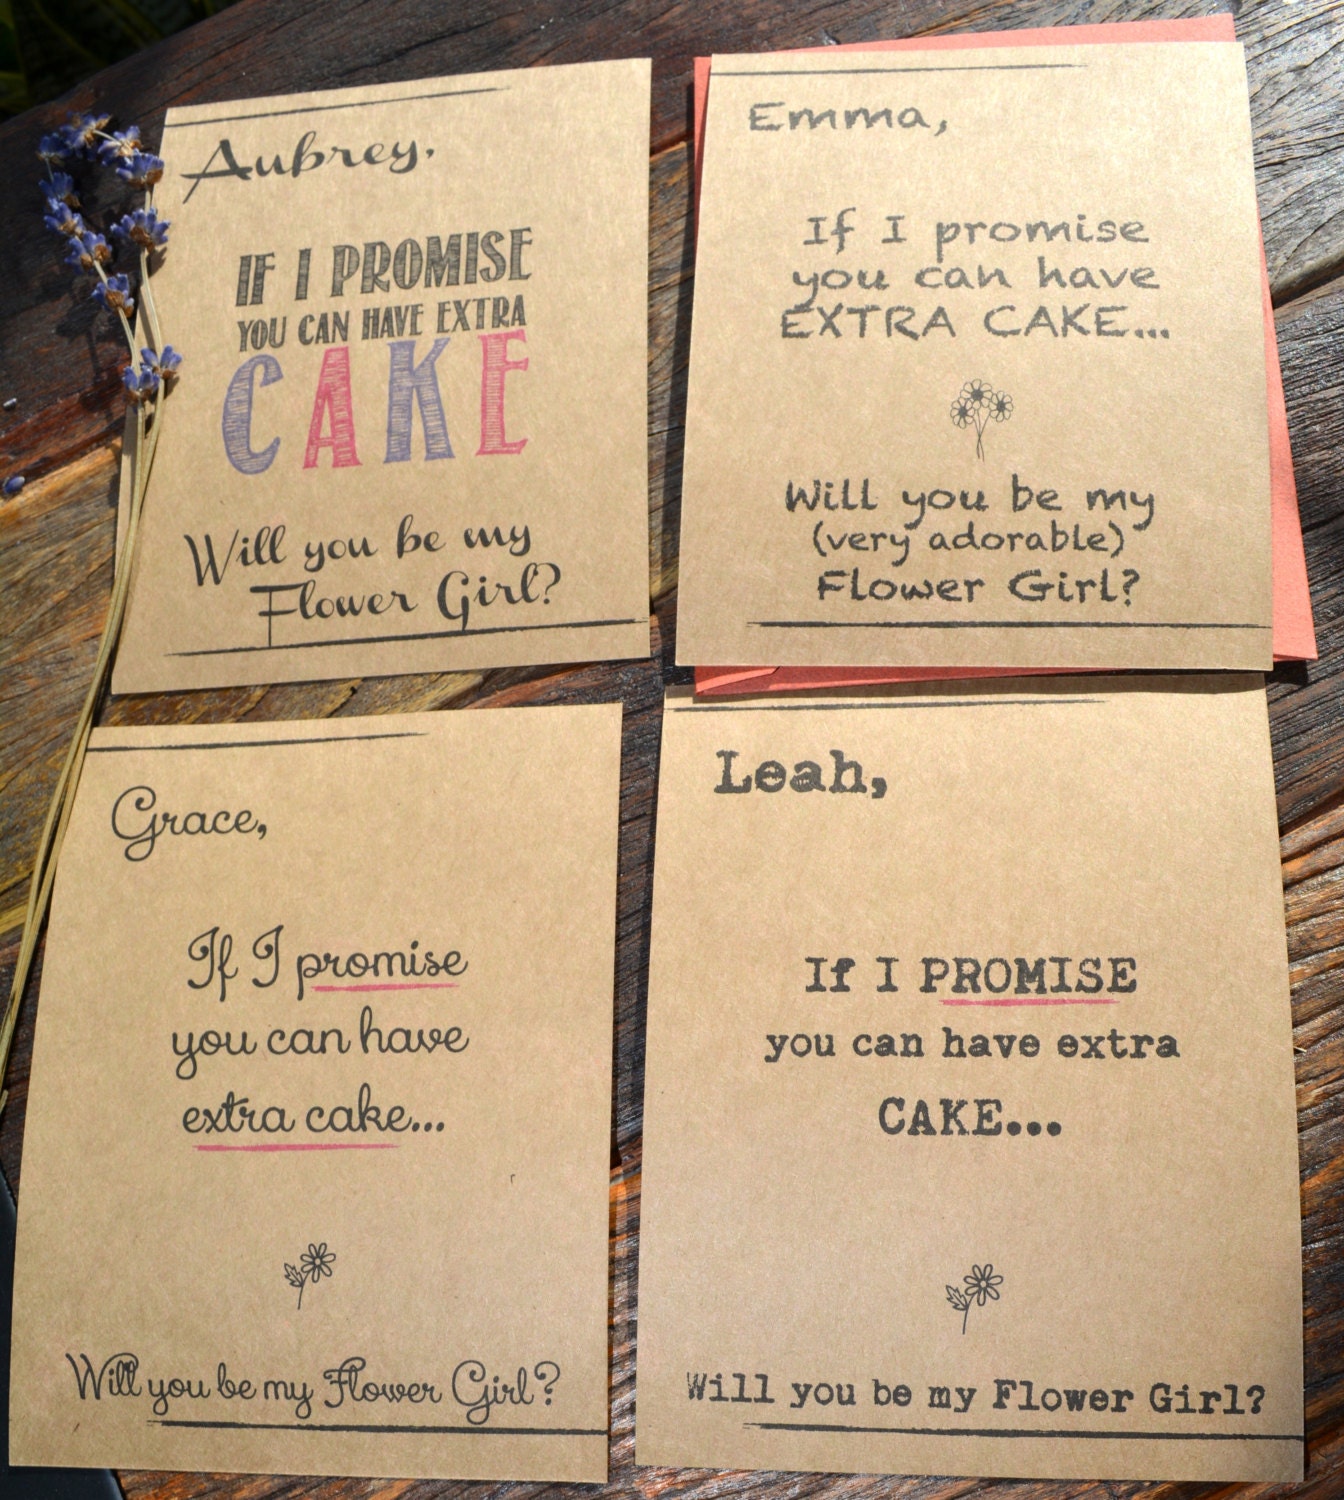 Aubrey,
IF I PROMISE
YOU CAN HAVE EXTRA
CAKE
Will you be my
Flower Girl?
Emma,
If I promise
you can have
EXTRA CAKE...
Will you be my
(very adorable)
Flower Girl?
Grace,
If I promise
you can have
extra cake...
Will you be my Flower Girl?
Leah,
If I PROMISE
you can have extra
CAKE...
Will you be my Flower Girl?